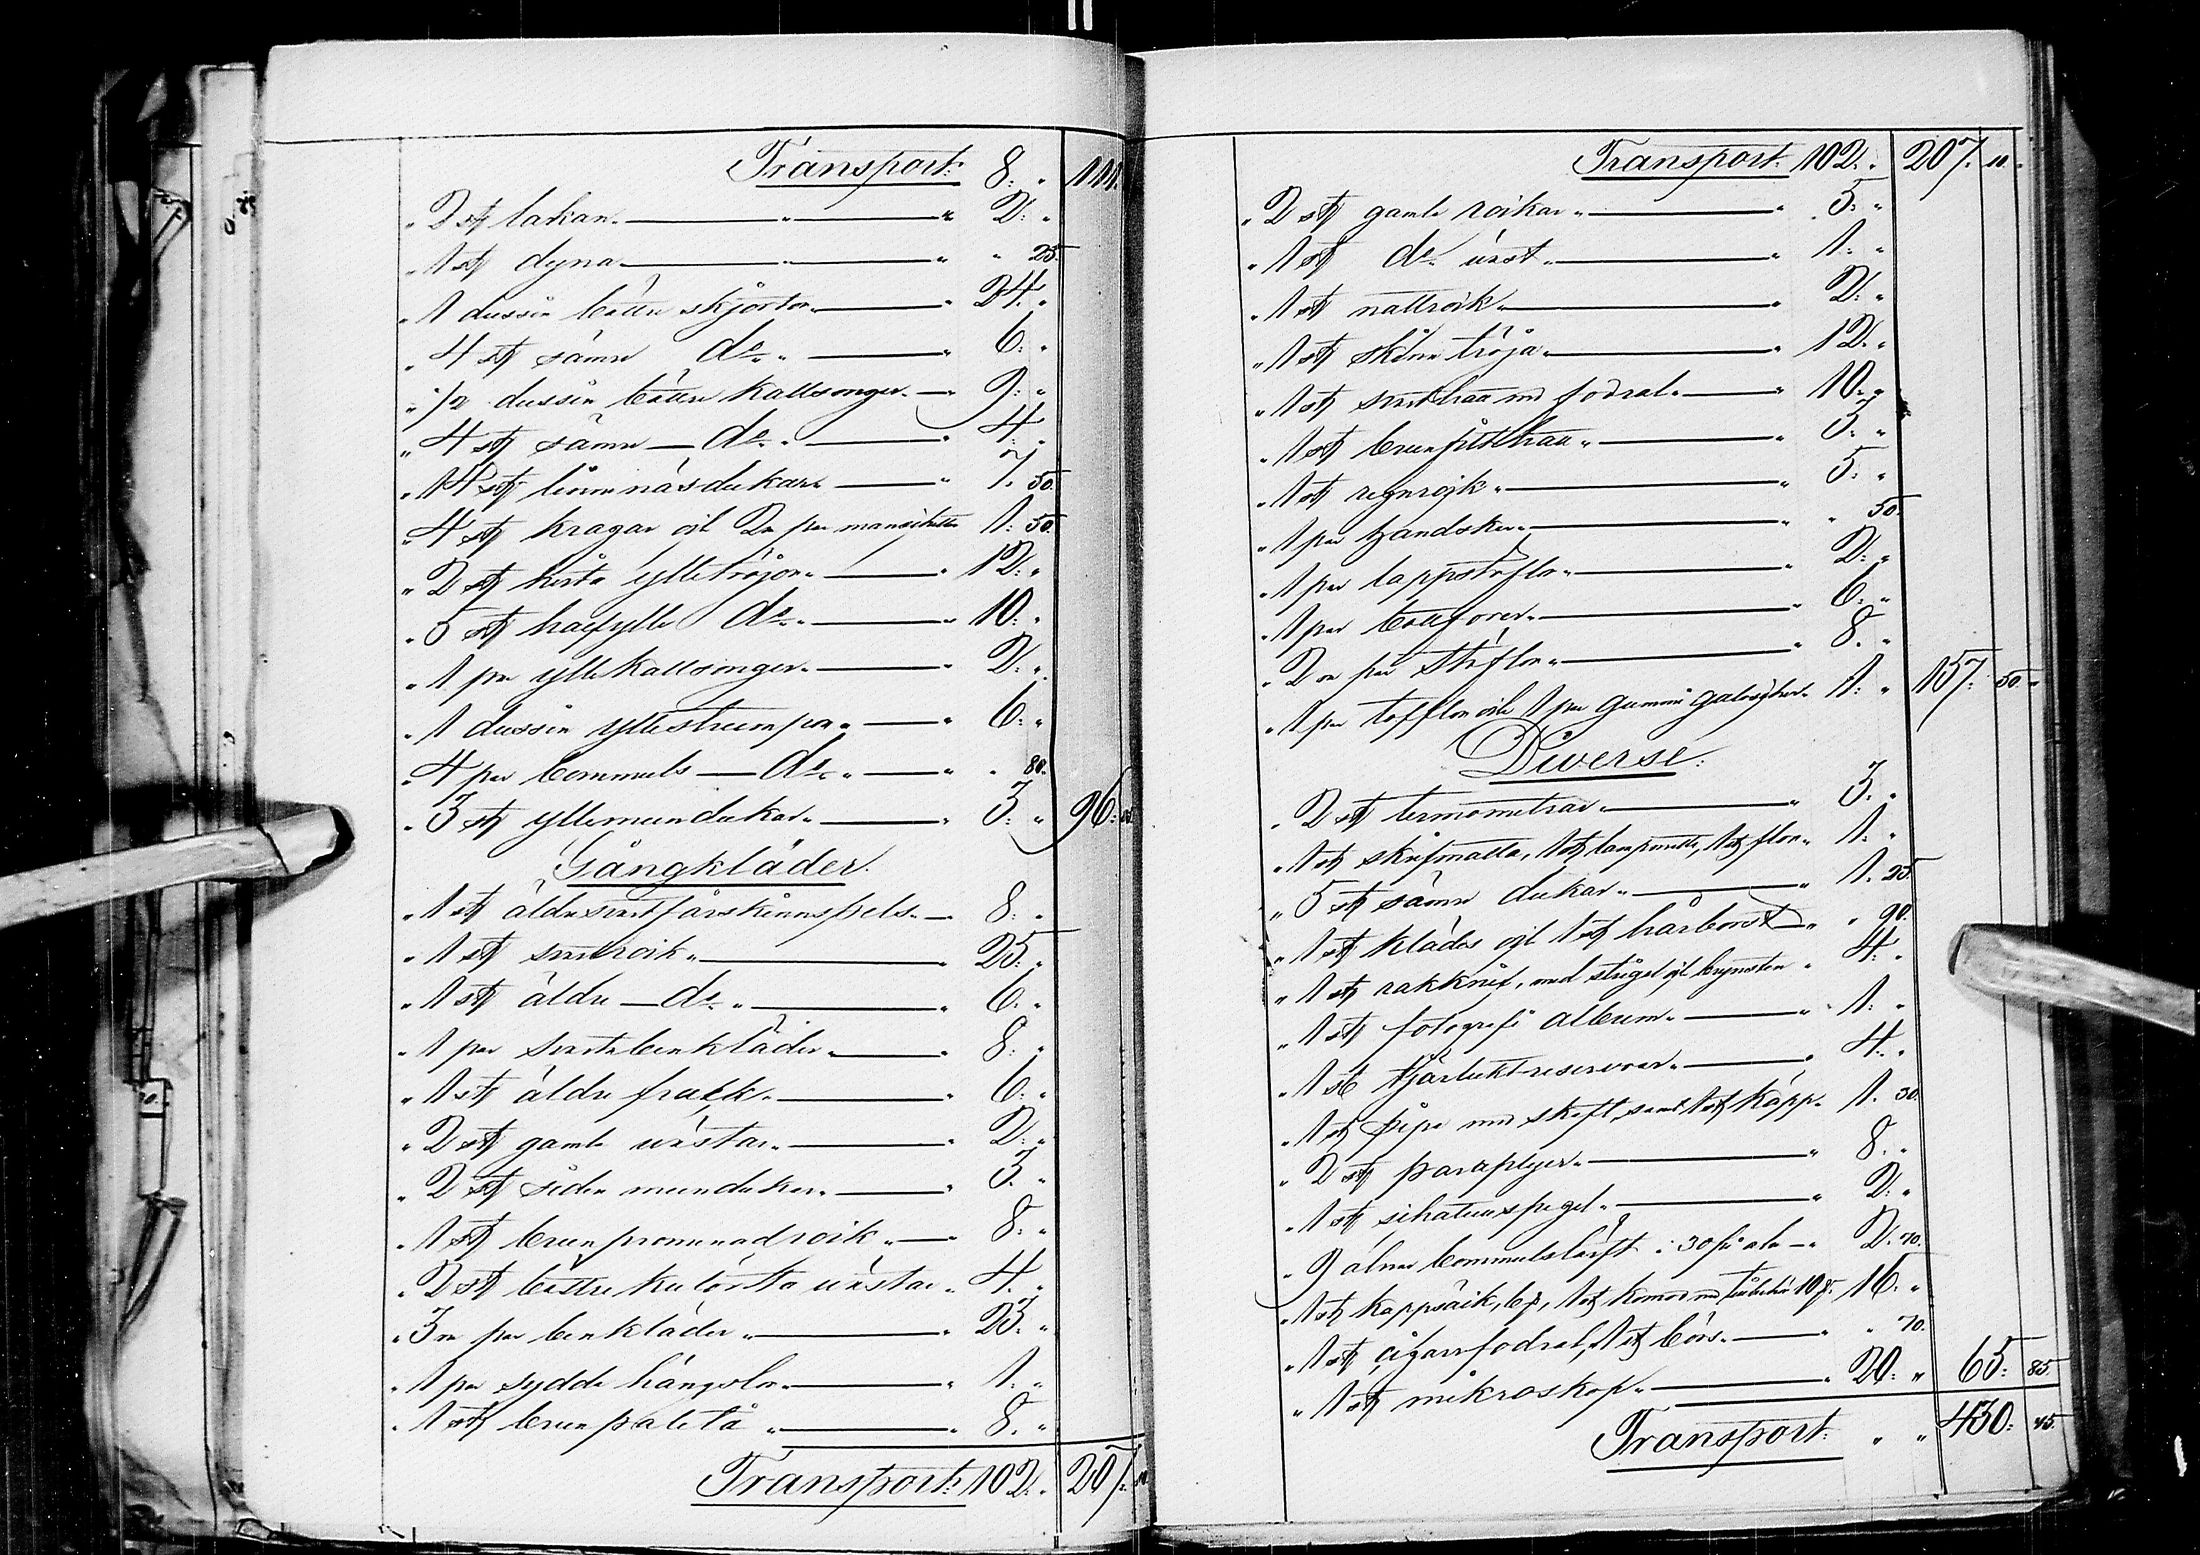 Transport: 8: " 111:
" 2 st lakan " " " 2: "
" 1 st dyna " " " " 25.
" 1 dussin bättre skjortor " " 24: "
" 4 st sämre do " " 6: "
" 1/2 dussin bättre kallsonger " 9: "
" 4 st sämre do " " 4: "
" 14 st linne näsdukar " " 7. 50.
" 4 st kragar och 2 par manchetter 1: 50.
" 2 st hvita ylletröjor " " 12: "
" 5 st halfylle do " " 10: "
" 1 par ylle kallsonger " " 2: "
" 1 dussin yllestrumpor " " 6: "
" 4 par bommuls do " " " 80.
" 3 st yllemundukar " " 3: " 96: 05.
Gångkläder.
" 1 st äldre svart fårskinnspels " 8: "
" 1 st surtout rock " " 25: "
" 1 st äldre do " " 6: "
" 1 par svarta benkläder " " 8: "
" 1 st äldre frack " " 6: "
" 2 st gamla västar " " 2: "
" 2 st siden mundukar " " 3. "
" 1 st brun promenadrock " " 8: "
" 2 st bättre kulörta västar " 4. "
" 3 par benkläder " " 23: "
" 1 par sydda hängslor " " 1. "
" 1 st brun paletå " " 8. "
Transport: 102: " 207: 10.
Transport: 102: " 207: 10.
" 2 st gamla rockar " " 5: "
" 1 st do väst " " 1: "
" 1 st nattrock " " 2: "
" 1 st skinntröja " " 12: "
" 1 st hatt med fodral " " 10: "
" 1 st brun filthatt " " 3: "
" 1 st regnrock " " 5: "
" 1 par handskar " " " 50.
" 1 par lappstöflor " " 2: "
" 1 par bottforer " " 6: "
" 2 par stöflor " " 8. "
" 1 par tofflor och 1 par gummi galoscher " 1: " 157: 50. "
Diverse.
" 2 st termometrar " " 3. "
" 1 st skrifmatta, 1 st lampmatta, 1 st flor " 1: "
" 5 st sämre dukar " " 1. 25.
" 1 st kläder och 1 st hårborst " " 90.
" 1 st rakknif, med strigel och brynsten " 4: "
" 1 st fotografi album " " 1: "
" 1 st tjärlukt-reservoar " " 4: "
" 1 st pipa med skaft samt 1 st käpp " 1. 30.
" 2 st paraplyer " " 8. "
" 1 st schatullspegel " " 2: "
" 9 alnar bommulslärft à 30 pr aln " 2: 70.
" 1 st kappsäck, 6, 1 st komod med tillbehör 10 16: "
" 1 st cigarrfodral, 1 st börs " " " 70.
" 1 st mikroskop " " 20: " 65: 85.
Transport: " " 430: 45.